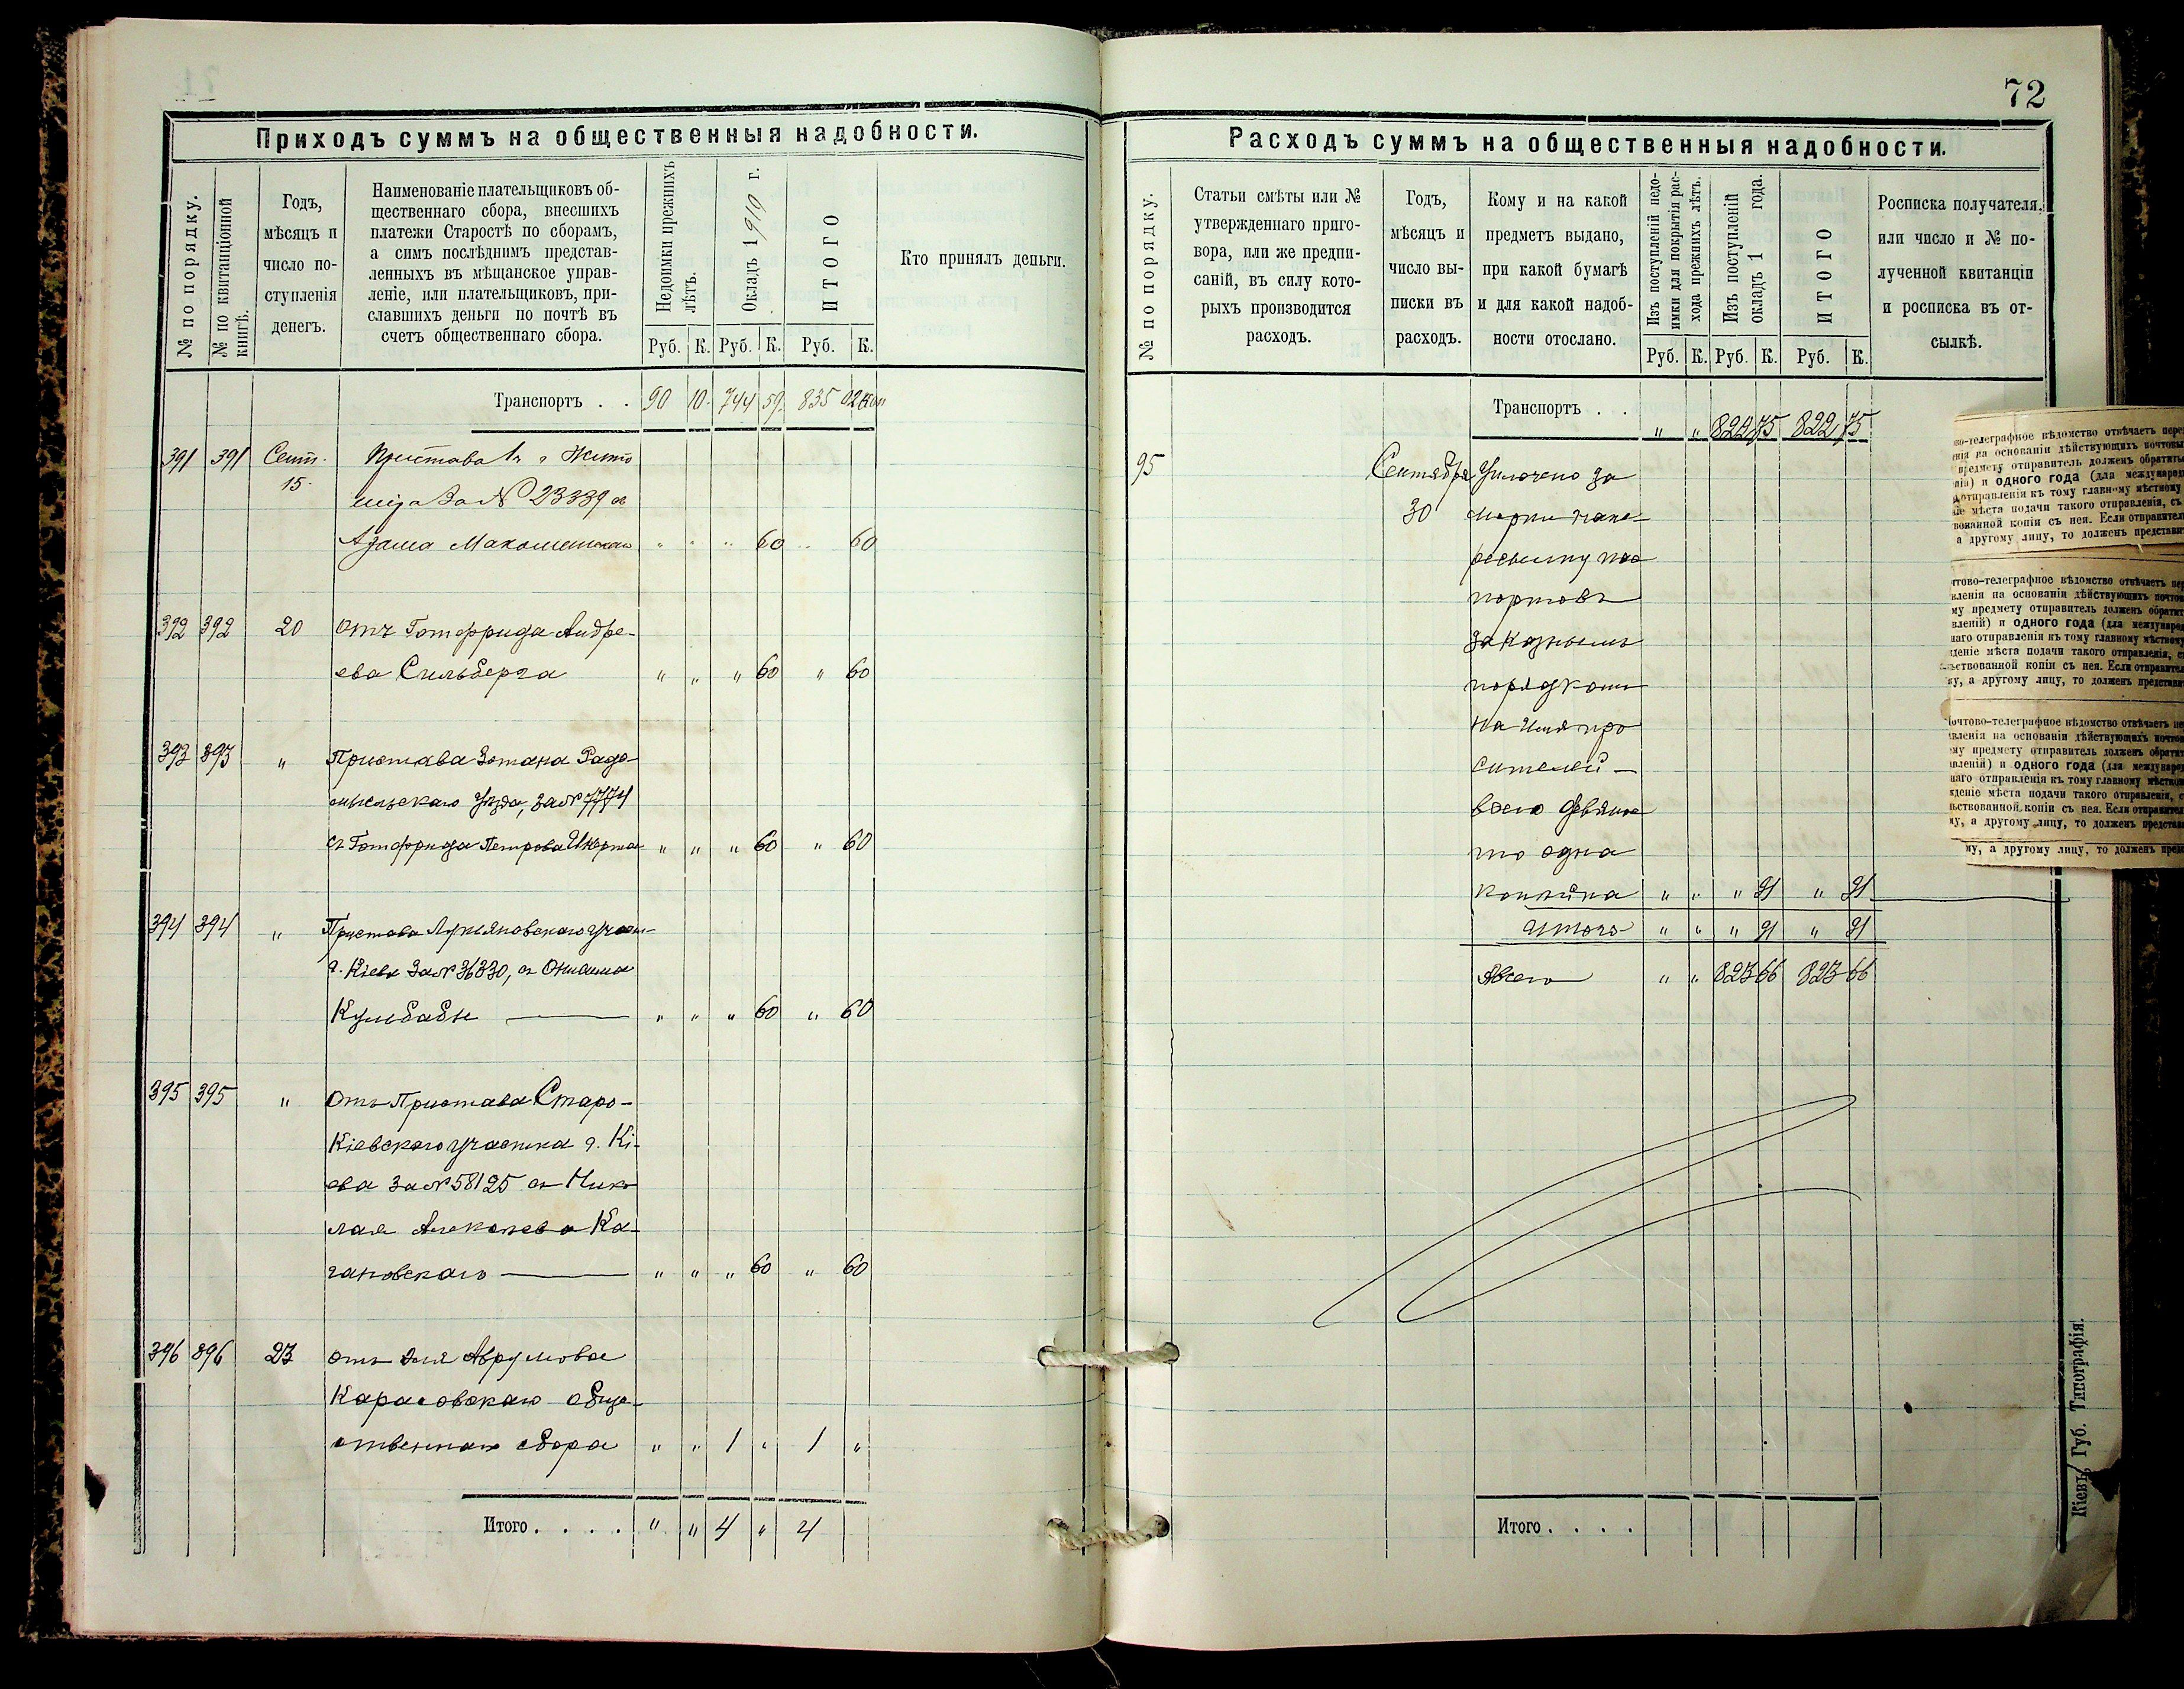 72
Приходъ суммъ на общественныя надобности.
№ по порядку.
№ по квитанціонной книгѣ.
Годъ,
мѣсяцъ и
число по-
ступленія
денегъ.
Наименованіе плательщиковъ об-
щественнаго сбора, внесшихъ
платежи Старостѣ по сборамъ,
а симъ послѣднимъ представ-
ленныхъ въ мѣщанское управ-
леніе, или плательщиковъ, при-
славшихъ деньги по почтѣ въ
счетъ общественнаго сбора.
Недоимки прежнихъ лѣтъ.
Окладъ 1910 г.
ИТОГО
Кто принялъ деньги.
Руб. К. Руб. К. Руб. К.
Транспортъ . . 90 10 744 59 835 02
391 391 Сент. Пристава г Жито
15
за № 23339 съ
Адама 60 60
392 392 20 отъ Готфрида Андре-
ева Сильберга " " " 60 " 60
393 393 " Пристава 3 стана Радо-
мысльскаго уѣзда, за № 7774
съ Готфрида Петрова " " " 60 " 60
394 394 " Пристава Лукьяновскаго участ-
г. Кіева за № 36330, съ
Кульбабы " " " 60 " 60
395 395 " отъ Пристава Старо-
Кіевскаго участка г. Кі-
ева за № 58125 съ Нико
лая Алексѣева Ка-
гановскаго " " " 60 " 60
396 396 23 отъ Эля Аврумова
Карасовскаго обще-
ственнаго сбора " " 1 " 1 "
Итого . . . . " " 4 " 4
Расходъ суммъ на общественныя надобности.
№ по порядку.
Статьи смѣты или №
утвержденнаго приго-
вора, или же предпи-
саній, въ силу кото-
рыхъ производится
расходъ.
Годъ,
мѣсяцъ и
число вы-
писки въ
расходъ.
Кому и на какой
предметъ выдано,
при какой бумагѣ
и для какой надоб-
ности отослано.
Изъ поступленій недо-
имки для покрытія рас-
хода прежнихъ лѣтъ.
Изъ поступленій
окладъ 1 года.
ИТОГО
Росписка получателя,
или число и № по-
лученной квитанціи
и росписка въ от-
сылкѣ.
Руб. К. Руб. К. Руб. К.
Транспортъ . . " " 822 75 822 75
95 Сентября Уплочено за
30 марки на пе-
ресылку пас
портовъ
заказнымъ
порядкомъ
на имя про
сителей —
всего девяно
сто одна
копѣйка " " " 91 " 91
Итого " " " 91 " 91
Всего " " 823 66 823 66
Итого . . . .
Кіевъ, Губ. Типографія.
во-телеграфное вѣдомство отвѣчаетъ
на основаніи дѣйствующихъ
предмету отправитель долженъ
и одного года (для
отправленія къ тому главному мѣстному
мѣста подачи такого отправленія, съ
копіи съ нея. Если
а другому лицу, то долженъ
чтово-телеграфное вѣдомство отвѣчаетъ
вленія на основаніи дѣйствующихъ
му предмету отправитель долженъ
вленій) и одного года (для
наго отправленія къ тому главному мѣстному
деніе мѣста подачи такого отправленія,
ствованной копіи съ нея. Если
ку, а другому лицу, то долженъ
Почтово-телеграфное вѣдомство отвѣчаетъ
вленія на основаніи дѣйствующихъ
му предмету отправитель долженъ
вленій) и одного года (для
наго отправленія къ тому главному
жденіе мѣста подачи такого отправленія,
ьствованной копіи съ нея. Если
ку, а другому лицу, то долженъ
му, а другому лицу, то долженъ